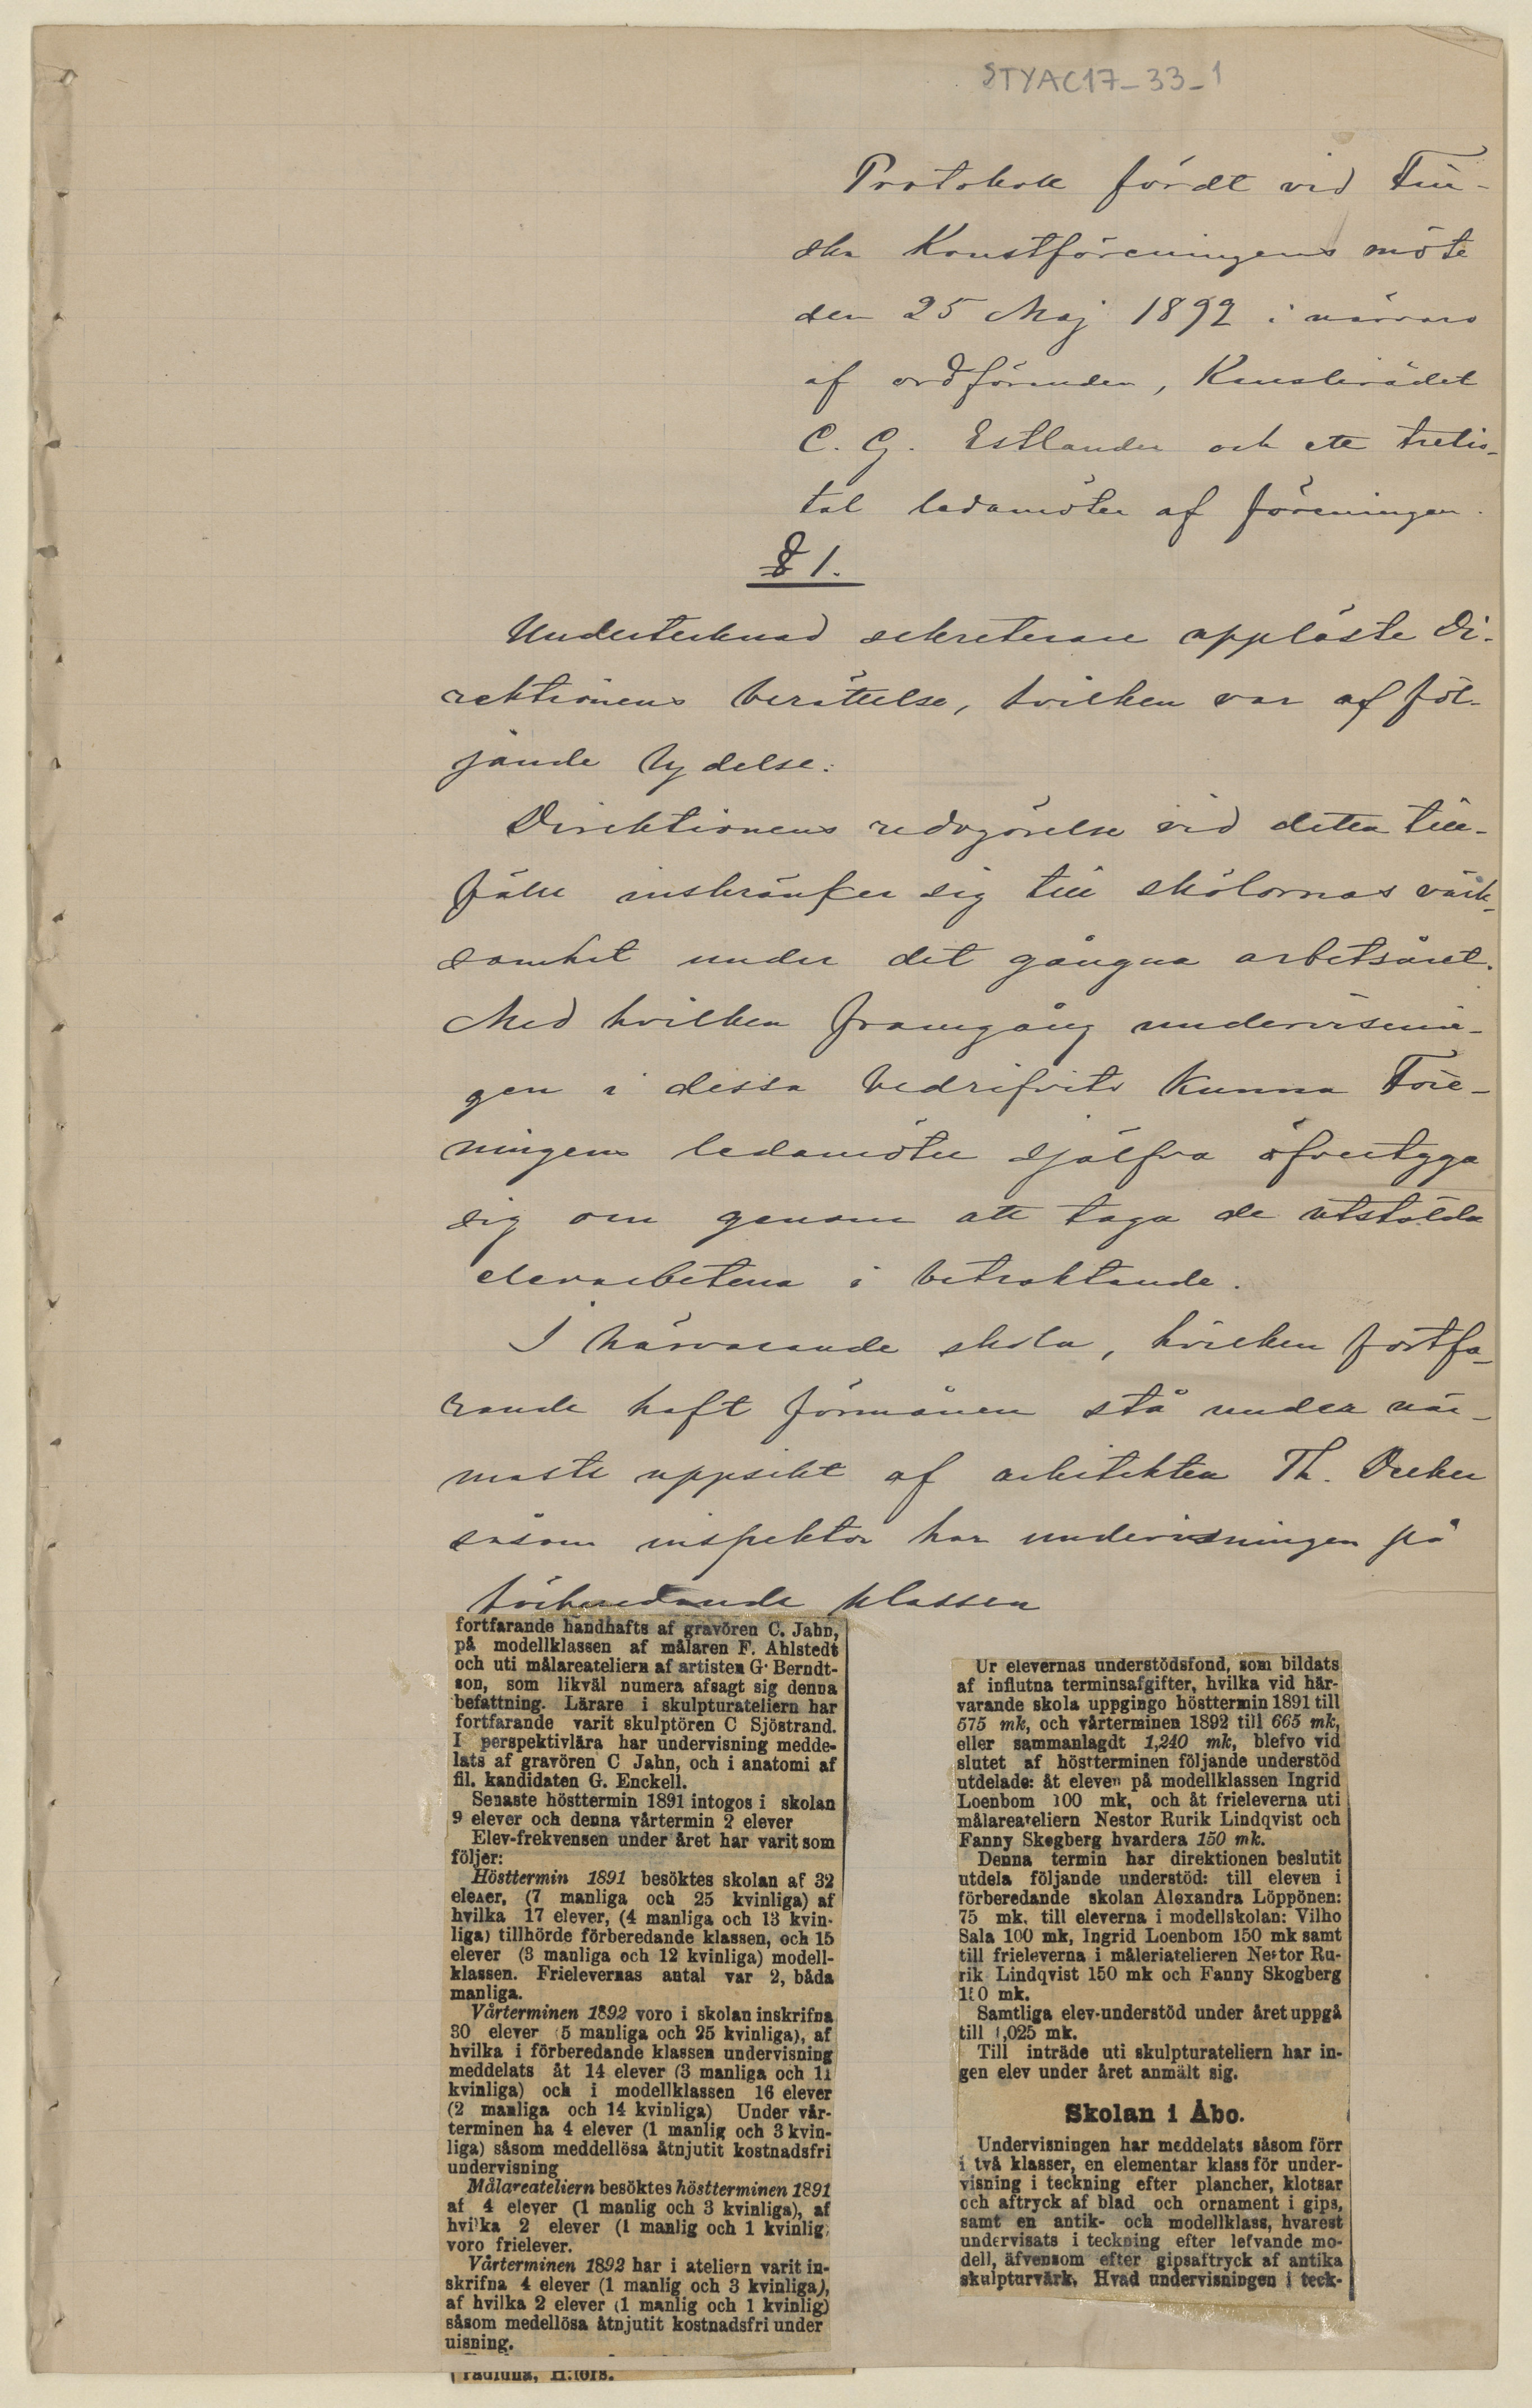 STYAC17_33_1
Protokoll fördt vid Fin-
ska Konstföreningens möte
den 25 Maj 1892 i närvaro
af ordföranden, Kanslirådet
C. G. Estlander och ett tretio-
tal ledamöter af föreningen.
§ 1.
Undertecknad sekreterare uppläste Di-
rektionens berättelse, hvilken var af föl-
jande lydelse:
Direktionens redogörelse vid detta till-
fälle inskränker sig till skolornas värk-
samhet under det gångna arbetsåret.
Med hvilken framgång undervisnin-
gen i dessa bedrifvits kunna Före-
ningens ledamöter sjelfva öfvertyga
sig om genom att taga de utstälda
elevarbetena i betraktande.
I härvarande skola, hvilken fortfa-
rande haft förmånen stå under när-
maste uppsikt af arkitekten Th. Decker
såsom inspektor har undervisningen på
förberedande klassen
fortfarande handhafts af gravören C. Jahn,
på modellklassen af målaren F. Ahlstedt
och uti målareateliern af artisten G. Berndt-
son, som likväl numera afsagt sig denna
befattning. Lärare i skulpturateliern har
fortfarande varit skulptören C Sjöstrand.
I perspektivlära har undervisning medde-
lats af gravören C Jahn, och i anatomi af
fil. kandidaten G. Enckell.
Senaste hösttermin 1891 intogos i skolan
9 elever och denna vårtermin 2 elever
Elev-frekvensen under året har varit som
följer:
Hösttermin 1891 besöktes skolan af 32
elever, (7 manliga och 25 kvinliga) af
hvilka 17 elever, (4 manliga och 13 kvin-
liga) tillhörde förberedande klassen, och 15
elever (3 manliga och 12 kvinliga) modell-
klassen. Frielevernas antal var 2, båda
manliga.
Vårterminen 1892 voro i skolan inskrifna
30 elever (5 manliga och 25 kvinliga), af
hvilka i förberedande klassen undervisning
meddelats åt 14 elever (3 manliga och 11
kvinliga) och i modellklassen 16 elever
(2 manliga och 14 kvinliga) Under vår-
terminen ha 4 elever (1 manlig och 3 kvin-
liga) såsom meddellösa åtnjutit kostnadsfri
undervisning
Målareateliern besöktes höstterminen 1891
af 4 elever (1 manlig och 3 kvinliga), af
hvilka 2 elever (1 manlig och 1 kvinlig)
voro frielever.
Vårterminen 1892 har i ateliern varit in-
skrifna 4 elever (1 manlig och 3 kvinliga),
af hvilka 2 elever (1 manlig och 1 kvinlig)
såsom medellösa åtnjutit kostnadsfri under
uisning.
H:fors.
Ur elevernas understödsfond, som bildats
af influtna terminsafgifter, hvilka vid här-
varande skola uppgingo hösttermin 1891 till
575 mk, och vårterminen 1892 till 665 mk,
eller sammanlagdt 1,240 mk, blefvo vid
slutet af höstterminen följande understöd
utdelade: åt eleven på modellklassen Ingrid
Loenbom 100 mk, och åt frieleverna uti
målareateliern Nestor Rurik Lindqvist och
Fanny Skogberg hvardera 150 mk.
Denna termin har direktionen beslutit
utdela följande understöd: till eleven i
förberedande skolan Alexandra Löppönen:
75 mk. till eleverna i modellskolan: Vilho
Sala 100 mk, Ingrid Loenbom 150 mk samt
till frieleverna i måleriatelieren Nestor Ru-
rik Lindqvist 150 mk och Fanny Skogberg
150 mk.
Samtliga elev-understöd under året uppgå
till 1,025 mk.
Till inträde uti skulpturateliern har in-
gen elev under året anmält sig.
Skolan i Åbo.
Undervisningen har meddelats såsom förr
i två klasser, en elementar klass för under-
visning i teckning efter plancher, klotsar
och aftryck af blad och ornament i gips,
samt en antik- och modellklass, hvarest
undervisats i teckning efter lefvande mo-
dell, äfvensom efter gipsaftryck af antika
skulpturvärk. Hvad undervisningen i teck-